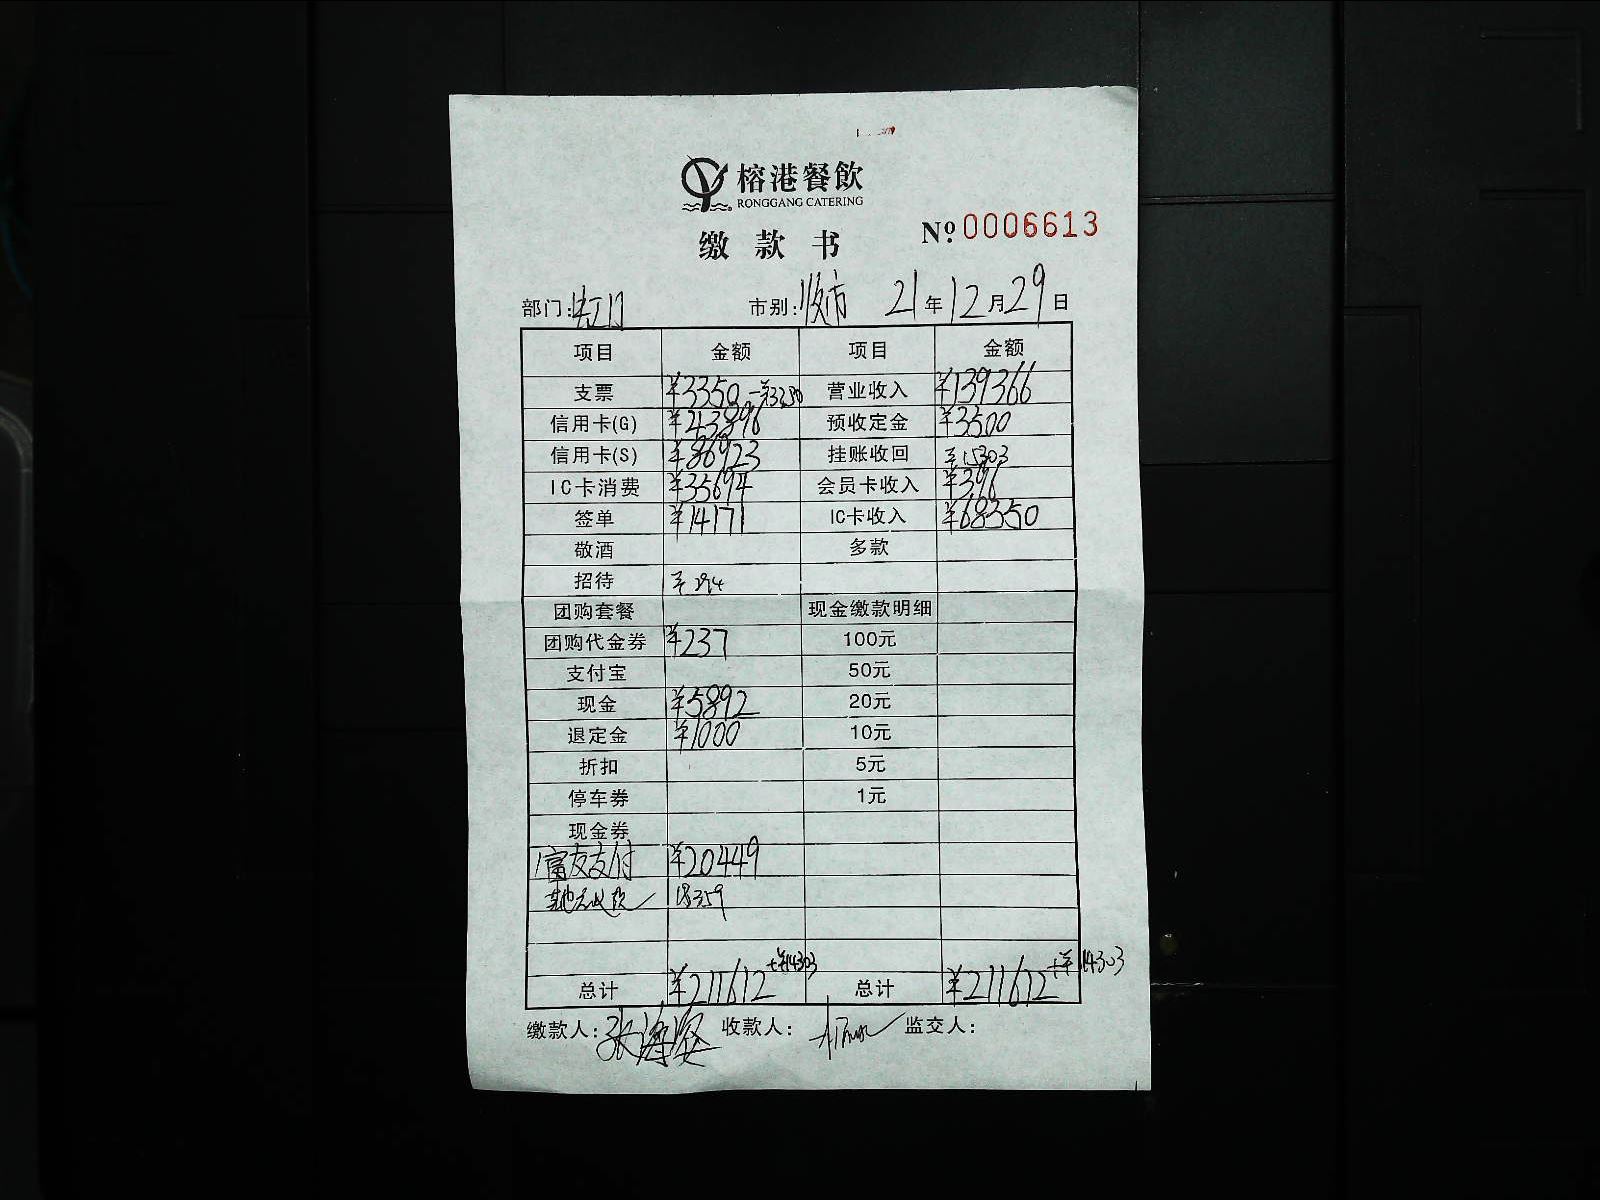 榕港餐飲
RONGGANG CATERING
缴款书 Nº.0006613
部门: 市别: 21年12月29日
项目 金额 项目 金额
支票 ¥3350 营业收入 ¥139366
信用卡(G) ¥43896 预收定金 ¥3500
信用卡(S) ¥86923 挂账收回 ¥15303
IC卡消费 ¥35694 会员卡收入 ¥396
签单 ¥14171 IC卡收入 ¥68350
敬酒 多款
招待
团购套餐 现金缴款明细
团购代金券 ¥237 100元
支付宝 50元
现金 ¥5892 20元
退定金 ¥1000 10元
折扣 5元
停车券 1元
现金券
富友支付 ¥20449
18359
总计 ¥211612 +¥14303 总计 ¥211612 +¥14303
缴款人: 收款人: 监交人: